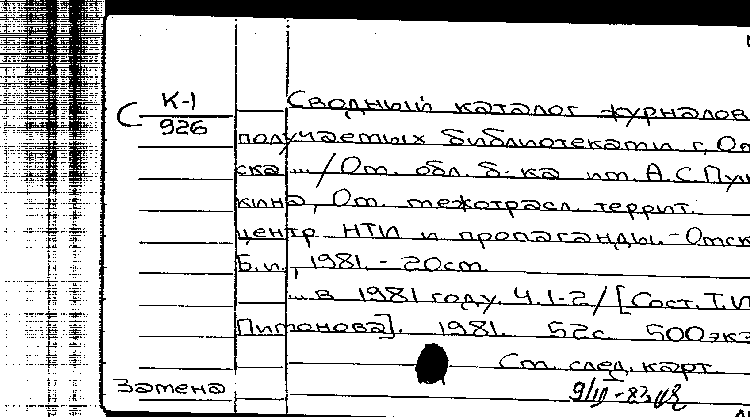 С К-1
926
Сводный каталог журналов
получаемых библиотеками г. Ом
ска ... / Ом. обл. б-ка им. А.С. Пуш
кина, Ом. межотрасл. террит.
центр НТИ и пропаганды. - Омск
Б.и., 1981. - 20 см.
... в 1981 году. Ч.1-2 / [Сост. Т.И.
]. 1981. 52 с. 500 экз
См. след. карт.
Замена
9/III - 83